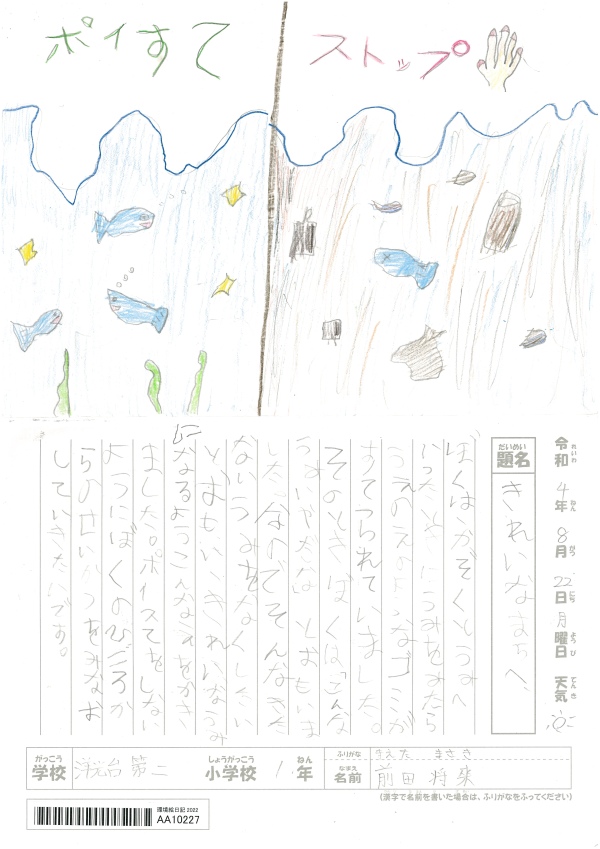 ポイすて ストップ
令和 れいわ 4 年 ねん 8 月 がつ 22 日 にち 月 曜日 ようび 天気 てんき
題名 だいめい きれいなまちへ
ぼくはかぞくとうみへ
いったときにうみをみたら
うえのえのようなゴミが
すててられていました。
そのときぼくは「こんな
うみいやだな」とおもいま
した。なのでそんなきた
ないうみをなくしたい
とおもい、きれいなうみ
になるようこんなえをかき
ました。ポイすてをしない
ようにぼくのひごろか
らのせいかつをみなお
していきたいです。
学校 がっこう 台第二 小学校 しょうがっこう 1 年 ねん
ふりがな まえだ まさき
名前 なまえ 前田 将
(漢字で名前を書いた場合は、ふりがなをふってください)
環境絵日記 2022
AA10227